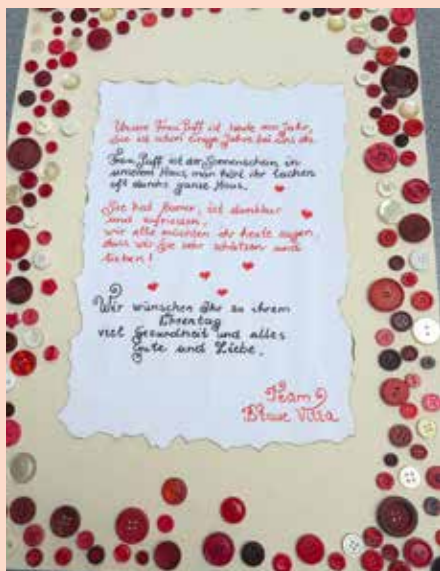 Unsere Frau Puff ist heute ein Jahr,
Sie ist schon einige Jahre bei uns da.
Frau Puff ist der Sonnenschein in
unserem Haus, man hört ihr Lachen
oft durchs ganze Haus.
Sie hat Humor, ist dankbar
und zufrieden,
wir alle möchten ihr heute sagen,
dass wir Sie sehr schätzen und
lieben!
Wir wünschen Ihr zu ihrem
Ehrentag
viel Gesundheit und alles
Gute und Liebe.
Team
Blaue Villa